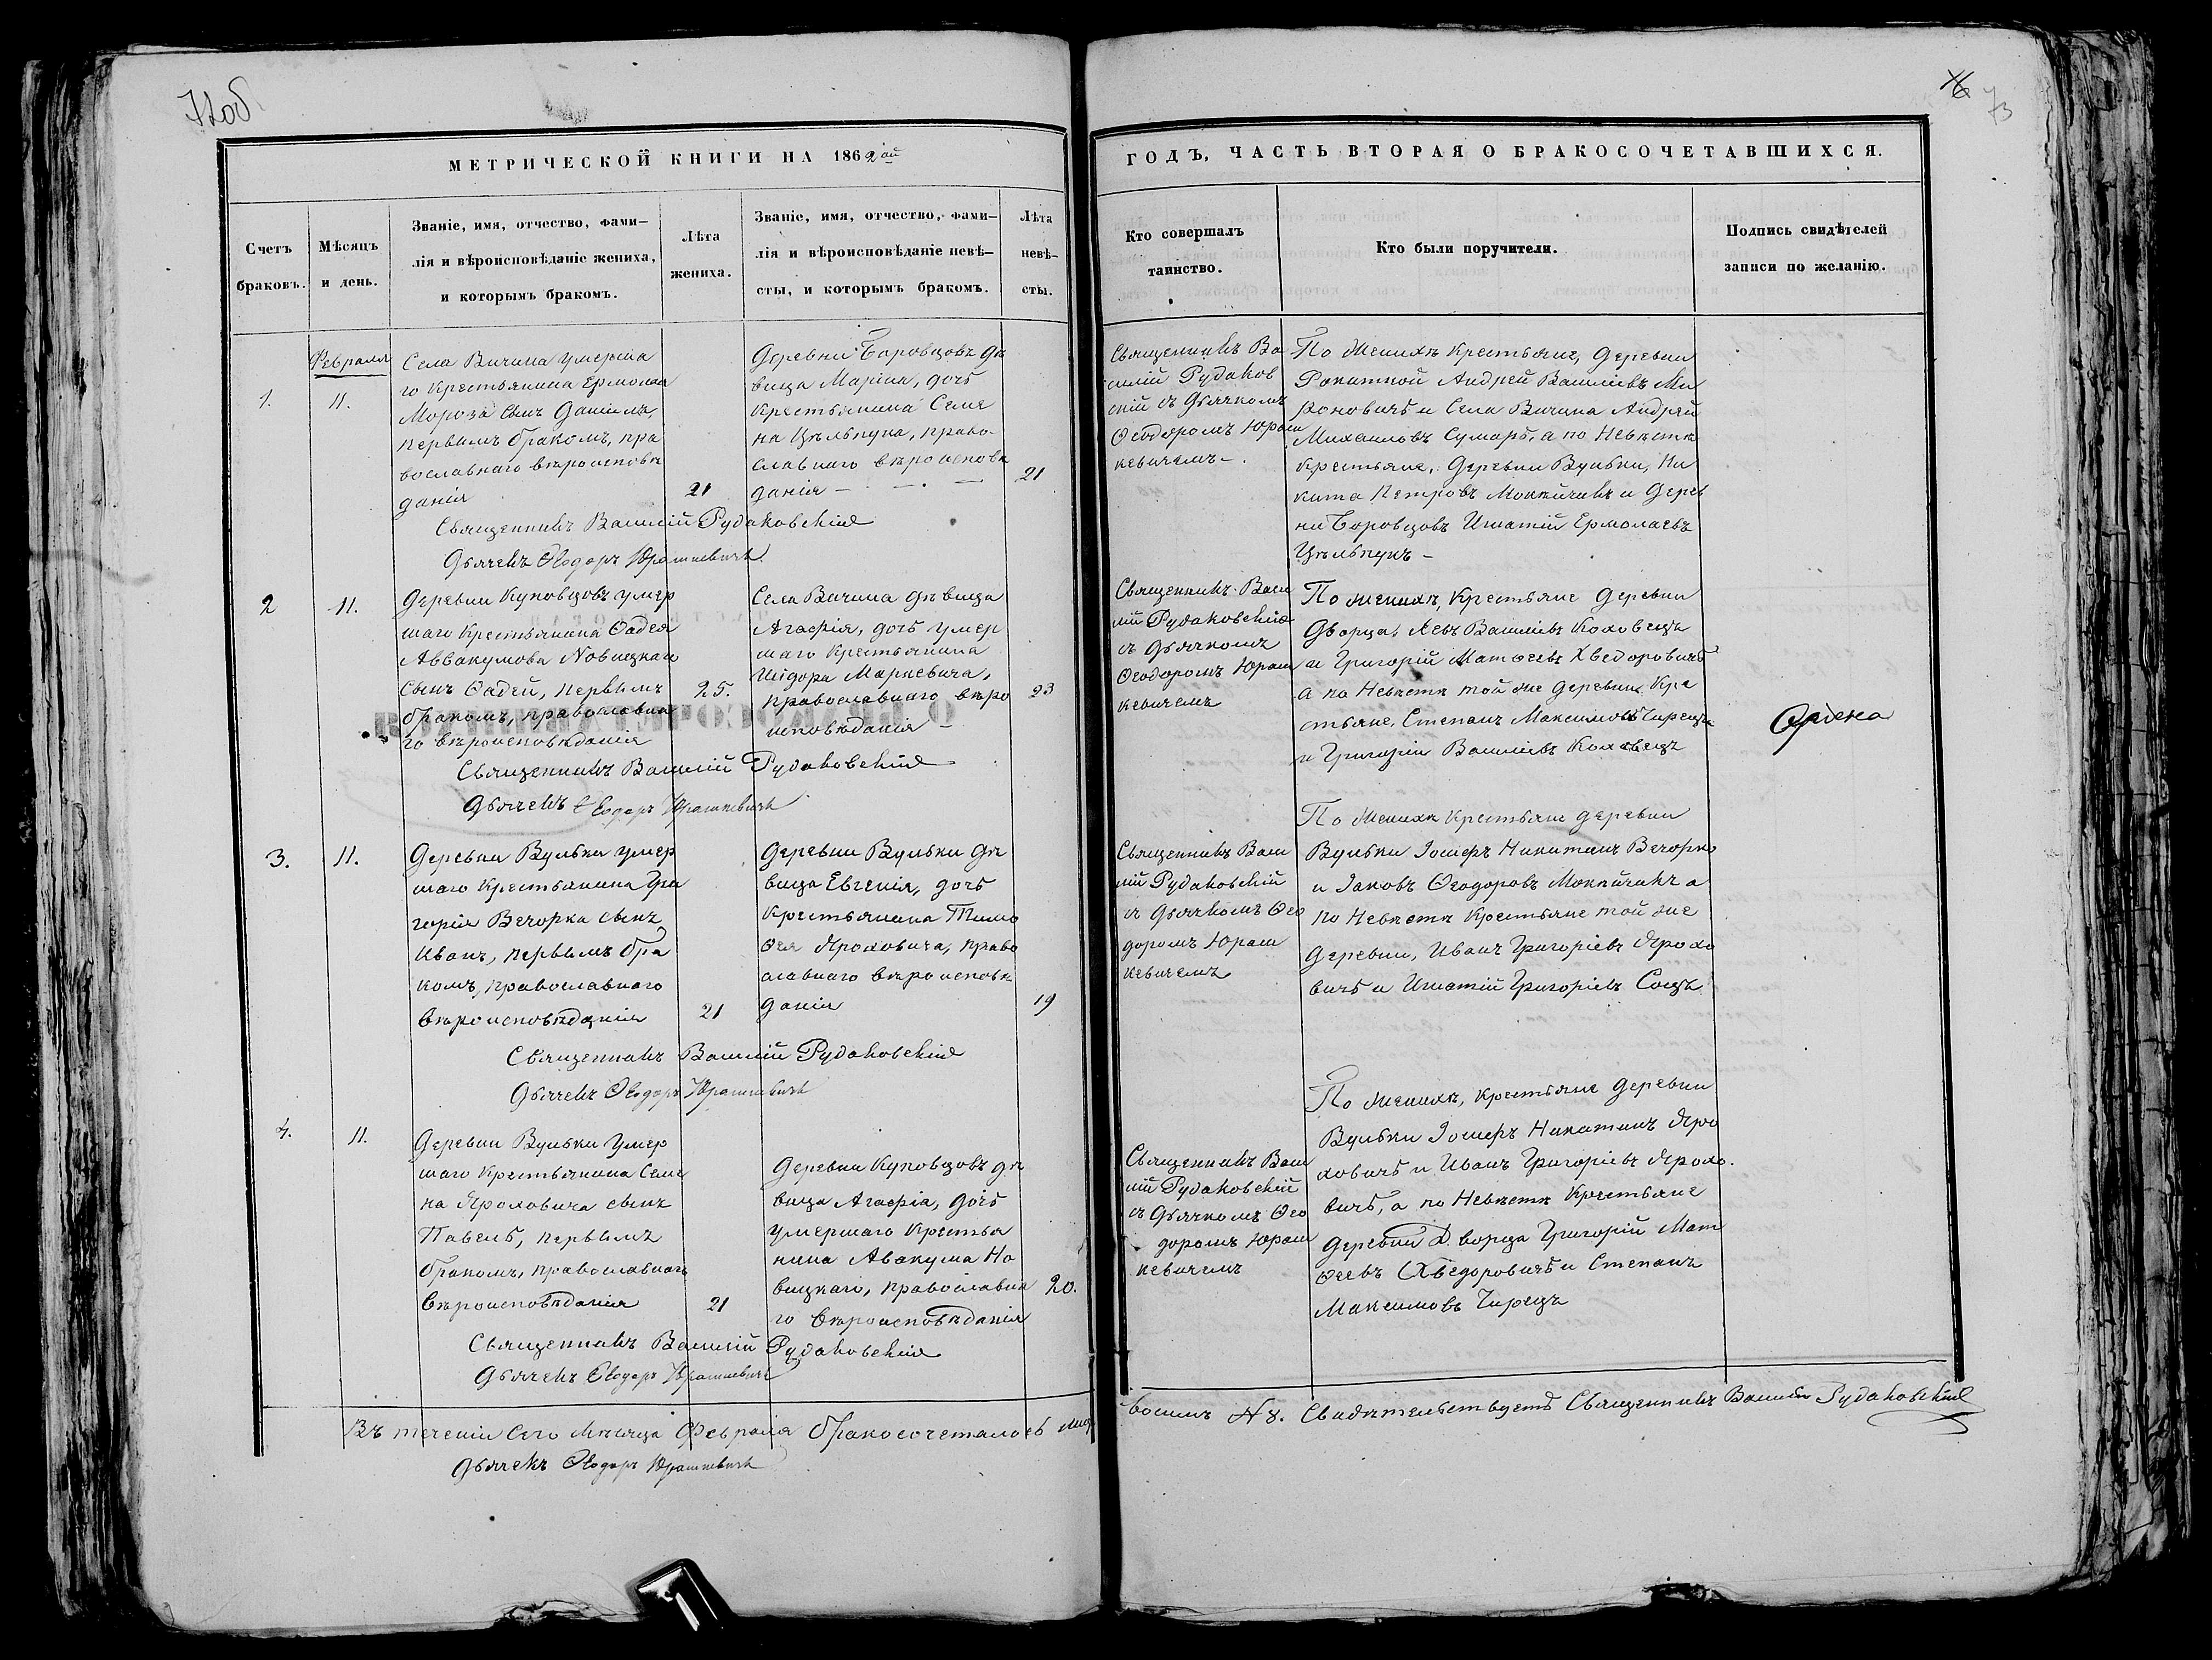 72об
73
МЕТРИЧЕСКОЙ КНИГИ НА 1862ой
ГОДЪ, ЧАСТЬ ВТОРАЯ О БРАКОСОЧЕТАВШИХСЯ.
Счетъ
браковъ.
Мѣсяцъ
и день.
Званіе, имя, отчество, фами-
лія и вѣроисповѣданіе жениха,
и которымъ бракомъ.
Лѣта
жениха.
Званіе, имя, отчество, фами-
лія и вѣроисповѣданіе невѣ-
сты, и которымъ бракомъ.
Лѣта
невѣ-
сты.
Кто совершалъ
таинство.
Кто были поручители.
Подпись свидѣтелей
записи по желанію.
1.
Февраля
11.
Села Вичина умерша
го Крестьянина Ермолая
Мороза сынъ Даніилъ,
первымъ бракомъ, пра
вославнаго вѣроисповѣ
данія
21
Деревни Боровцовъ дѣ
вица Марѳа, дочь
Крестьянина Семе
на Цѣльпука, право-
славнаго вѣроисповѣ
данія —
21
Священникъ Ва
силій Рудаков
скій съ дьячкомъ
Ѳеодоромъ Юраш
кевичемъ —.
По Женихѣ Крестьяне, Деревни
Ракитной Андрей Васильевъ Ми
роновичь и Села Вичина Андрей
Михаиловъ Сумаръ, а по Невѣстѣ
крестьяне, Деревни Вульки, Ни
кита Петровъ Моквичикъ и Дерев
ни Боровцовъ Игнатій Ермолаевъ
Цѣльпукъ —
Священникъ Василій Рудаковскій
Дьячекъ Ѳеодоръ Юрашкевичъ
2
11.
Деревни Куповцовъ умер
шаго Крестьянина Ѳадея
Аввакумова Новицкаго
сынъ Ѳадей, первымъ
бракомъ, православна
го вѣроисповѣданія
25.
Села Вичина дѣвица
Агафія, дочь умер
шаго Крестьянина
Исидора Маркевича,
православнаго вѣро
исповѣданія —
23
Священникъ Васи
лій Рудаковскій
съ дьячкомъ
Ѳеодоромъ Юраш
кевичемъ
По женихѣ, Крестьяне Деревни
Дворца, Левъ Васильевъ Коховецъ
и Григорій Матѳеевъ Хведоровичь
а по Невѣстѣ той же Деревни Кре
стьяне, Степанъ Максимовъ Чирецъ
и Григорій Васильевъ Коховецъ
Священникъ Василій Рудаковскій
Дьячекъ Ѳеодоръ Юрашкевичъ
3.
11.
Деревни Вульки умер
шаго Крестьянина Гри
горія Вечорка сынъ
Иванъ, первымъ бра
комъ, православнаго
вѣроисповѣданія
21
Деревни Вульки дѣ
вица Евгенія, дочь
Крестьянина Тимо
ѳея Яроховича, право
славнаго вѣроисповѣ
данія
19
Священникъ Васи
лій Рудаковскій
съ дьячкомъ Ѳео
доромъ Юраш
кевичемъ
По Женихѣ Крестьяне деревни
Вульки Іосифъ Никитинъ Вечорко
и Іаковъ Ѳеодоровъ Моквичикъ а
по Невѣстѣ Крестьяне той же
Деревни, Иванъ Григоріевъ Ярохо
вичь и Игнатій Григоріевъ Соецъ
Священникъ Василій Рудаковскій
Дьячекъ Ѳеодоръ Юрашкевичъ
4.
11.
Деревни Вульки умер
шаго Крестьянина Семе
на Яроховича сынъ
Павель, первымъ
бракомъ, православнаго
вѣроисповѣданія
21
Деревни Куповцовъ дѣ
вица Агафія, дочь
умершаго Крестья
нина Авакума Но
вицкаго, православна
го вѣроисповѣданія
20.
Священникъ Васи
лій Рудаковскій
съ дьячкомъ Ѳео
доромъ Юраш
кевичемъ
По женихѣ, крестьяне деревни
Вульки Іосифъ Никитинъ Яро
ховичь и Иванъ Григоріевъ Ярохо-
вичь, а по Невѣстѣ Крестьяне
Деревни Дворца Григорій Мат
ѳеевъ Хведоровичь и Степанъ
Максимовъ Чирецъ
Священникъ Василій Рудаковскій
Дьячекъ Ѳеодоръ Юрашкевичъ
Въ теченіи сего Мѣсяца Февраля бракосочеталось лицъ
восемь N 8. Свидѣтельствуетъ Священникъ Василій Рудаковскій
Дьячекъ Ѳеодоръ Юрашкевичъ